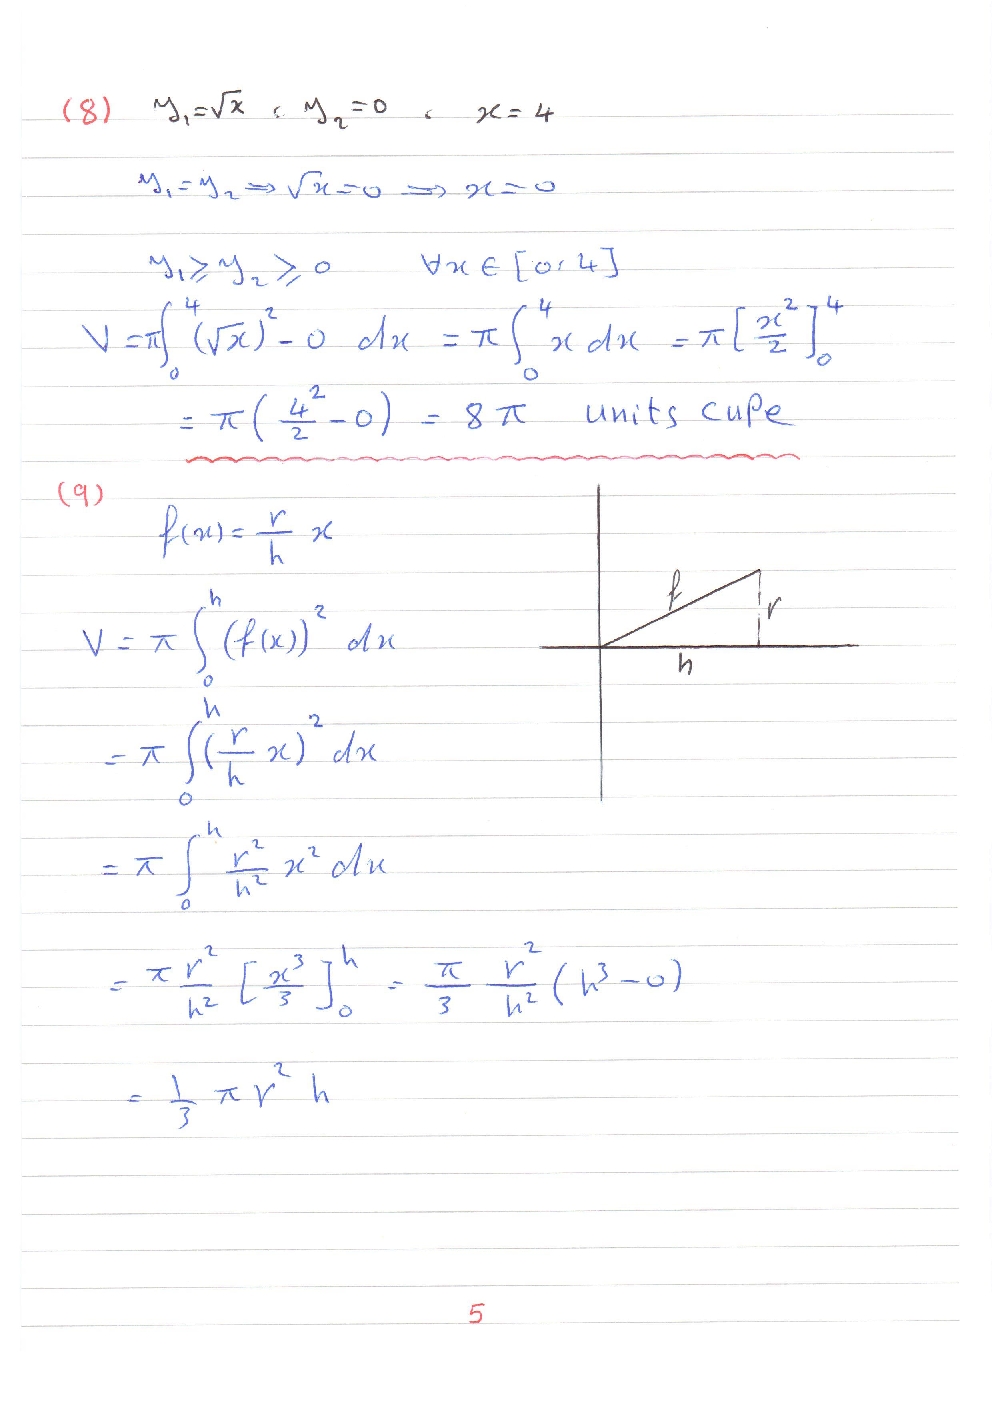 (8) y₁=√x ، y₂=0 ، x=4
y₁=y₂ ⇒ √x=0 ⇒ x=0
y₁⩾y₂⩾0 ∀x∈[0,4]
V=π∫₀⁴(√x)²-0 dx = π∫₀⁴ x dx = π[x²/2]₀⁴
= π(4²/2-0) = 8π units cupe
(9)
f(x)= r/h x
V = π ∫₀ʰ (f(x))² dx
= π ∫₀ʰ (r/h x)² dx
= π ∫₀ʰ r²/h² x² dx
= π r²/h² [x³/3]₀ʰ = π/3 r²/h² (h³-0)
= 1/3 π r² h
f
r
h
5